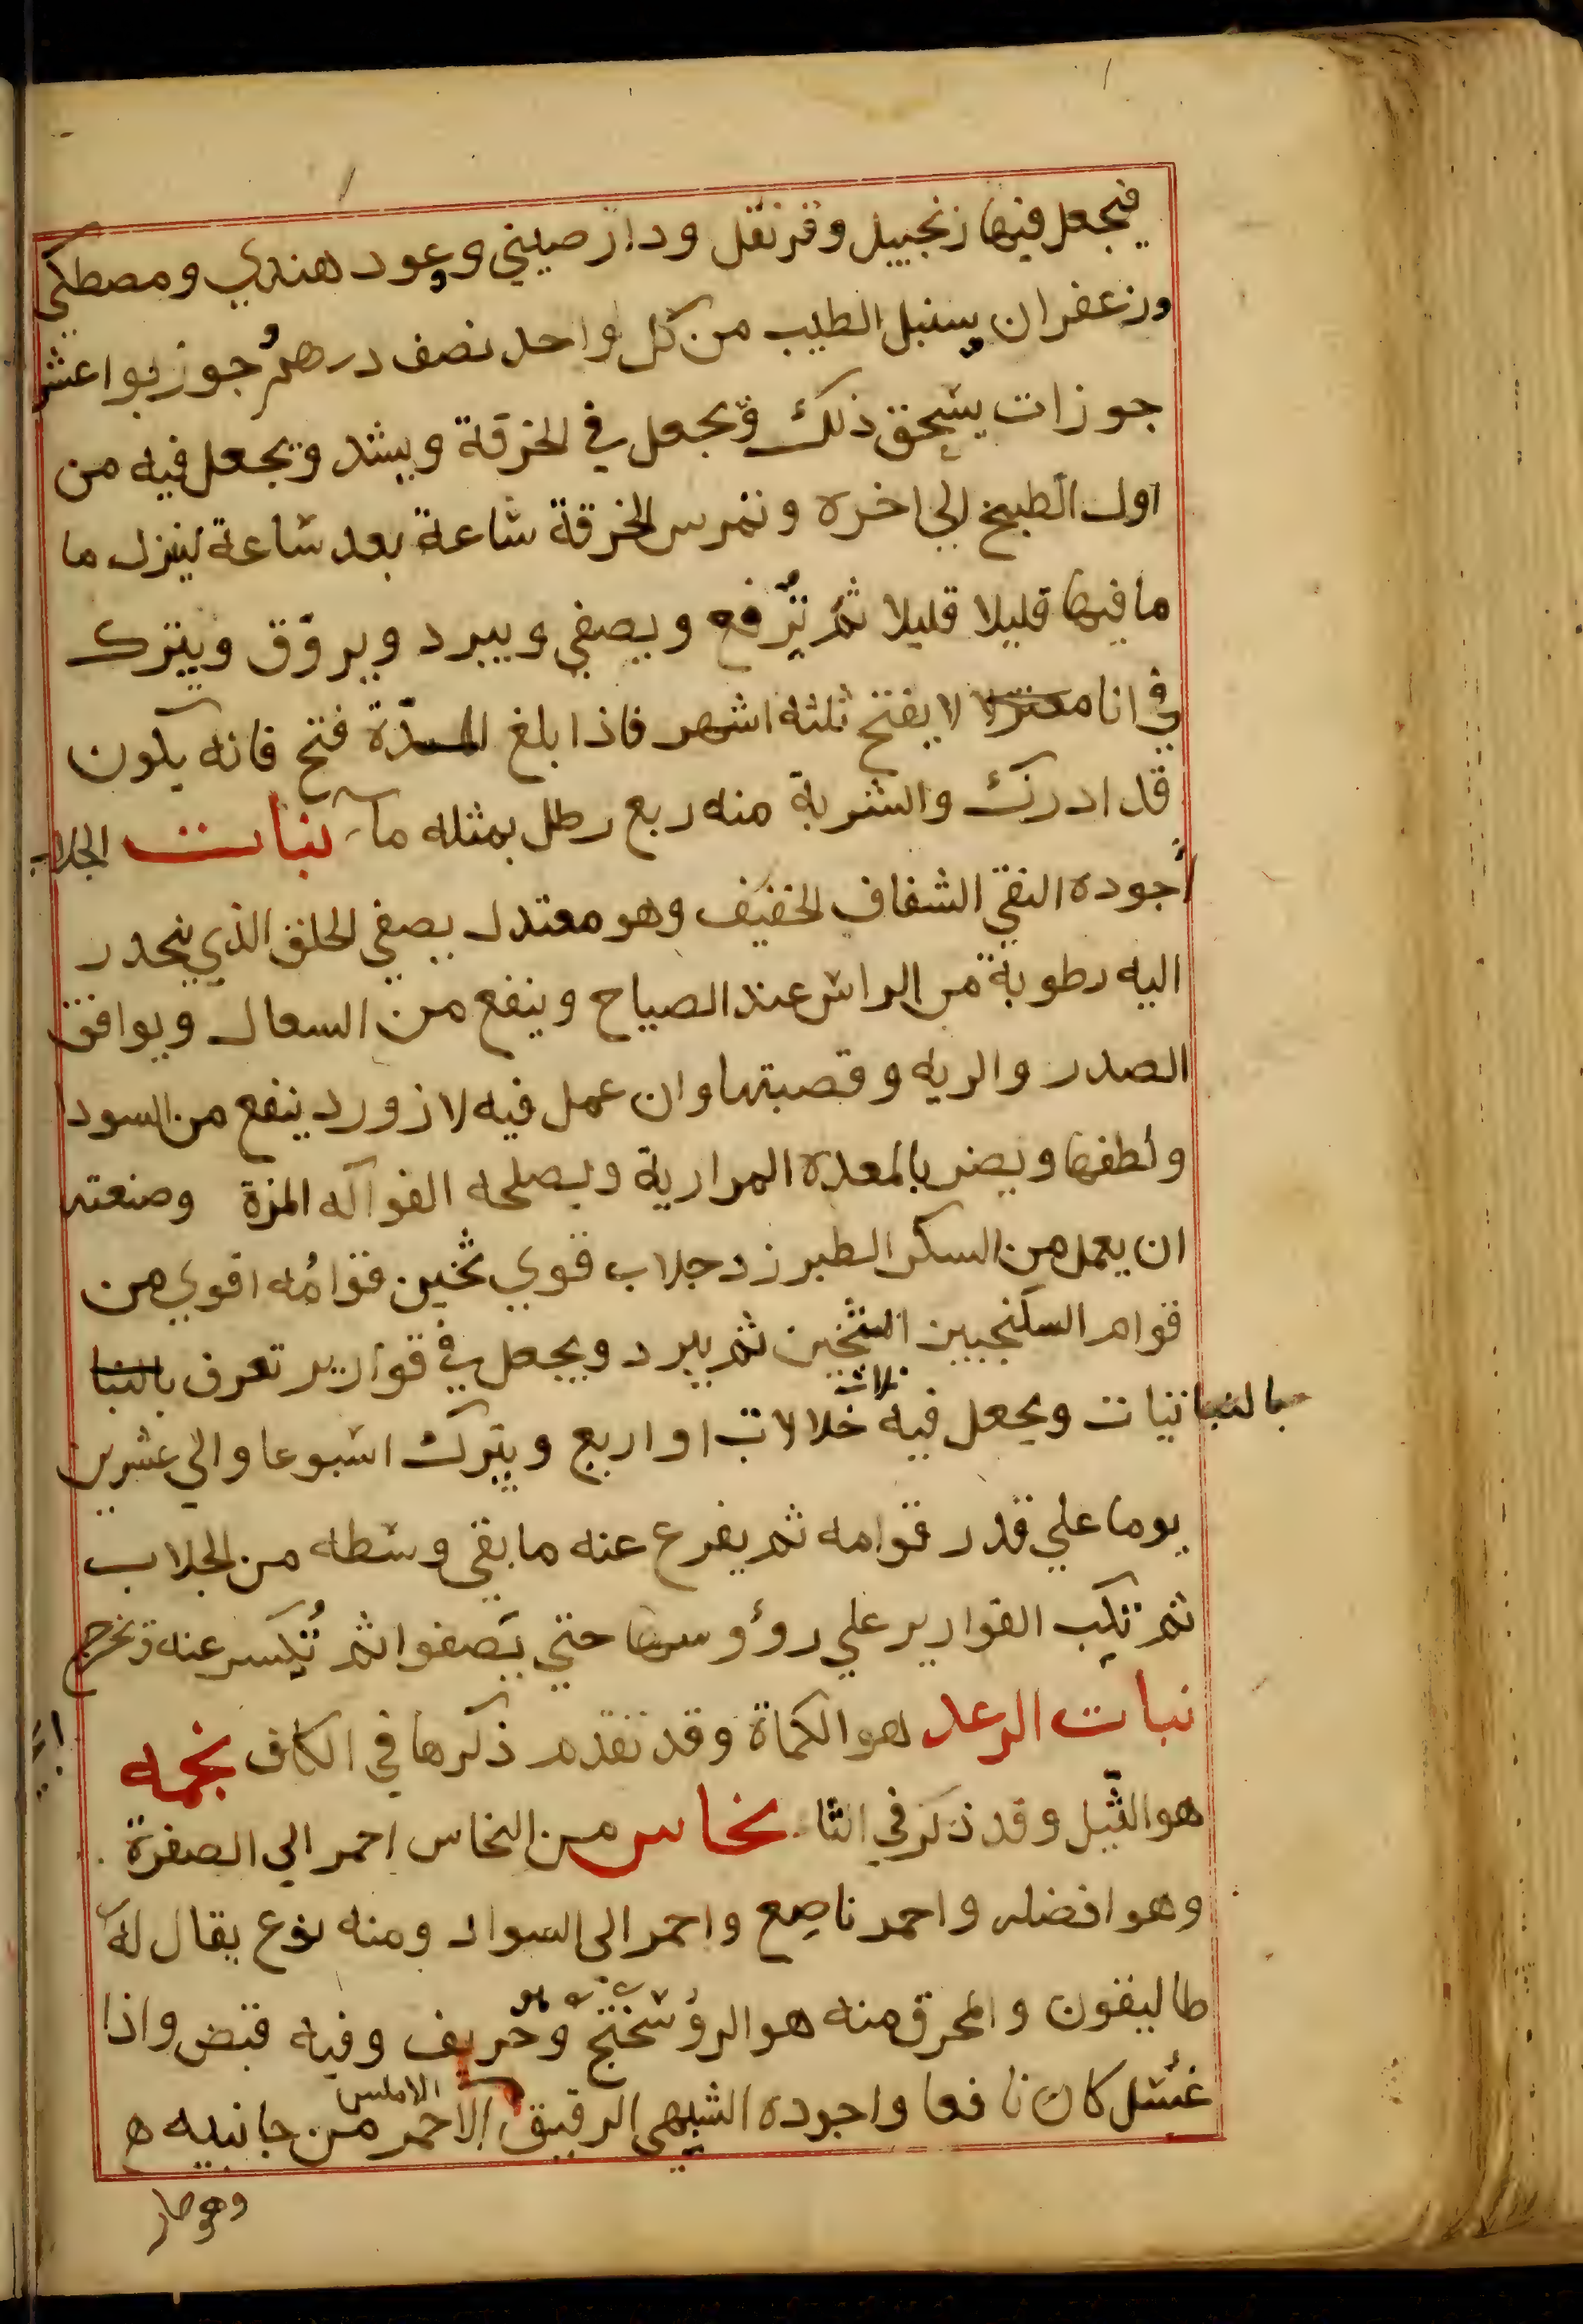 فيجعل فيها زنجبيل وقرنفل ودارصيني وعود هندي ومصطكي
وزعفران وسنبل الطيب من كل واحد نصف درهم وجوزبوا عشر
جوزات يسحق ذلك ويجعل في الخرقة ويشد ويجعل فيه من
اول الطبخ الي اخره وتمرس الخرقة ساعة بعد ساعة لينزل ما
ما فيها قليلا قليلا ثم ترفع ويصفي ويبرد ويروق ويترك
في انا لا يفتح ثلثه اشهر فاذا بلغ المدة فتح فانه يكون
قد ادرك والشربة منه ربع رطل بمثله مآء نبات الجلاب
أجوده النقي الشفاف الخفيف وهو معتدل يصفي الحلق الذي ينحدر
اليه رطوبة من الراس عند الصياح وينفع من السعال ويوافق
الصدر والريه وقصبتها وان عمل فيه لازورد ينفع من السودا
ولطفها ويضر بالمعده المرارية ويصلحه الفواكه المزة وصنعته
ان يعمل من السكر الطبرزد جلاب قوي ثخين قوامُه اقوي من
قوام السكنجبين الثخين ثم يبرد ويجعل في قوارير تعرف بالنبا
بالنباتيات ويجعل فيه ثلاث خلالات او اربع ويترك اسبوعا والي عشرين
يوما علي قدر قوامه ثم يفرع عنه ما بقي وسطه من الجلاب
ثم تكب القوارير علي رؤوسها حتي يصفوا ثم تُكسر عنه وتخرج
نبات الرعد هو الكماة وقد تقدم ذكرها في الكاف نجمه
هو الثّيل وقد ذكر في الثا نحاس من النحاس احمر الي الصفرة
وهو افضله واحمر ناصع واحمر الى السواد ومنه نوع يقال له
طاليقون والمحرق منه هو الروسختج وهو حريف وفيه قبض واذا
غسل كان نافعا واجوده الشبهي الرقيق الاحمر الاملس من جانبيه ه
وهو حار